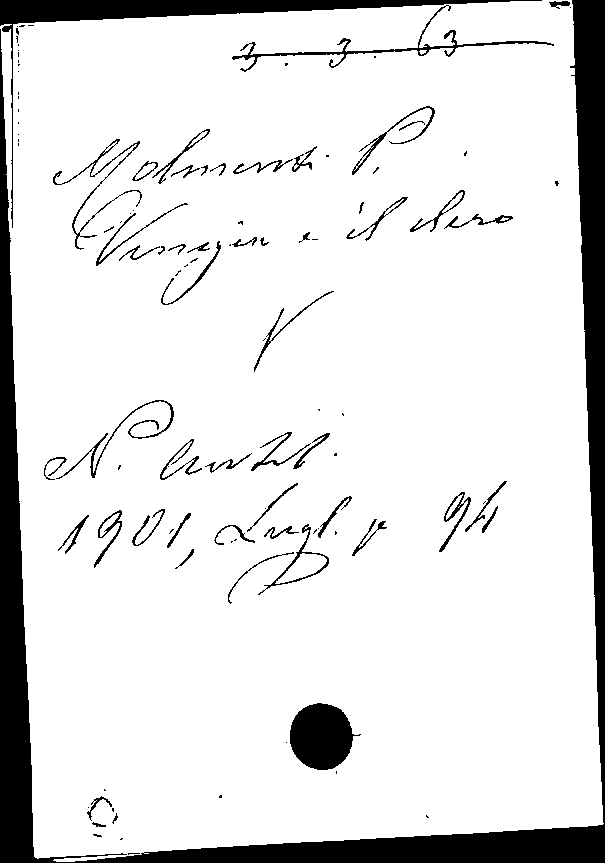 3. 3. 63
Molmenti P.
Venezia e il clero
V
N. Antol.
1901, Lugl. p 94